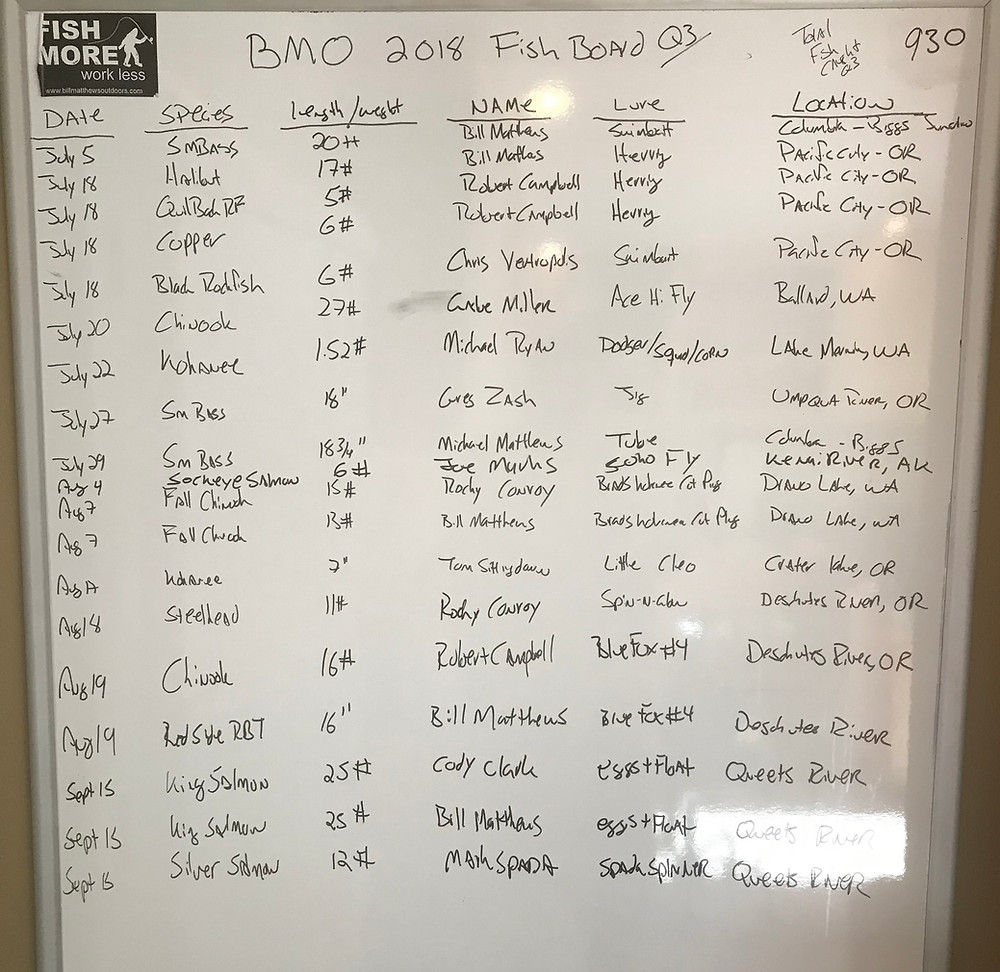 FISH
MORE
work less
www.billmatthewsoutdoors.com
BMO 2018 Fish Board Q3
Total Fish Caught Q3 930
Date Species Length/weight Name Lure Location
July 5 SmBass 20# Bill Matthews Swimbait Columbia - Biggs Junction
July 18 Halibut 17# Bill Matthews Herring Pacific City - OR
July 18 QuilBack RF 5# Robert Campbell Herring Pacific City - OR
July 18 Copper 6# Robert Campbell Herring Pacific City - OR
July 18 Black Rockfish 6# Chris Vertropolis Swimbait Pacific City - OR
July 20 Chinook 27# Gabe Miller Ace Hi Fly Ballard, WA
July 22 Kokanee 1.52# Michael Ryan Dodger/Squid/corn Lake WA
July 27 Sm Bass 18" Greg Zash Jig Umpqua River, OR
July 29 Sm Bass 18 3/4" Michael Matthews Tube Columbia - Biggs
Aug 4 Sockeye Salmon 6# Joe Soho Fly Kenai River, AK
Aug 7 Fall Chinook 15# Rocky Conroy Brads Cut Plug Drano Lake, WA
Aug 7 Fall Chinook 13# Bill Matthews Brads Cut Plug Drano Lake, WA
Aug Kokanee 7" Tom Little Cleo Crater Lake, OR
Aug 18 Steelhead 11# Rocky Conroy Spin-N-Glow Deshutes River, OR
Aug 19 Chinook 16# Robert Campbell Blue Fox #4 Deschutes River, OR
Aug 19 Redside RBT 16" Bill Matthews Blue Fox #4 Deschutes River
Sept 15 King Salmon 25# Cody Clark eggs + Float Queets River
Sept 15 King Salmon 25# Bill Matthews eggs + Float Queets River
Sept 15 Silver Salmon 12# Mark Spada Spada Spinner Queets River